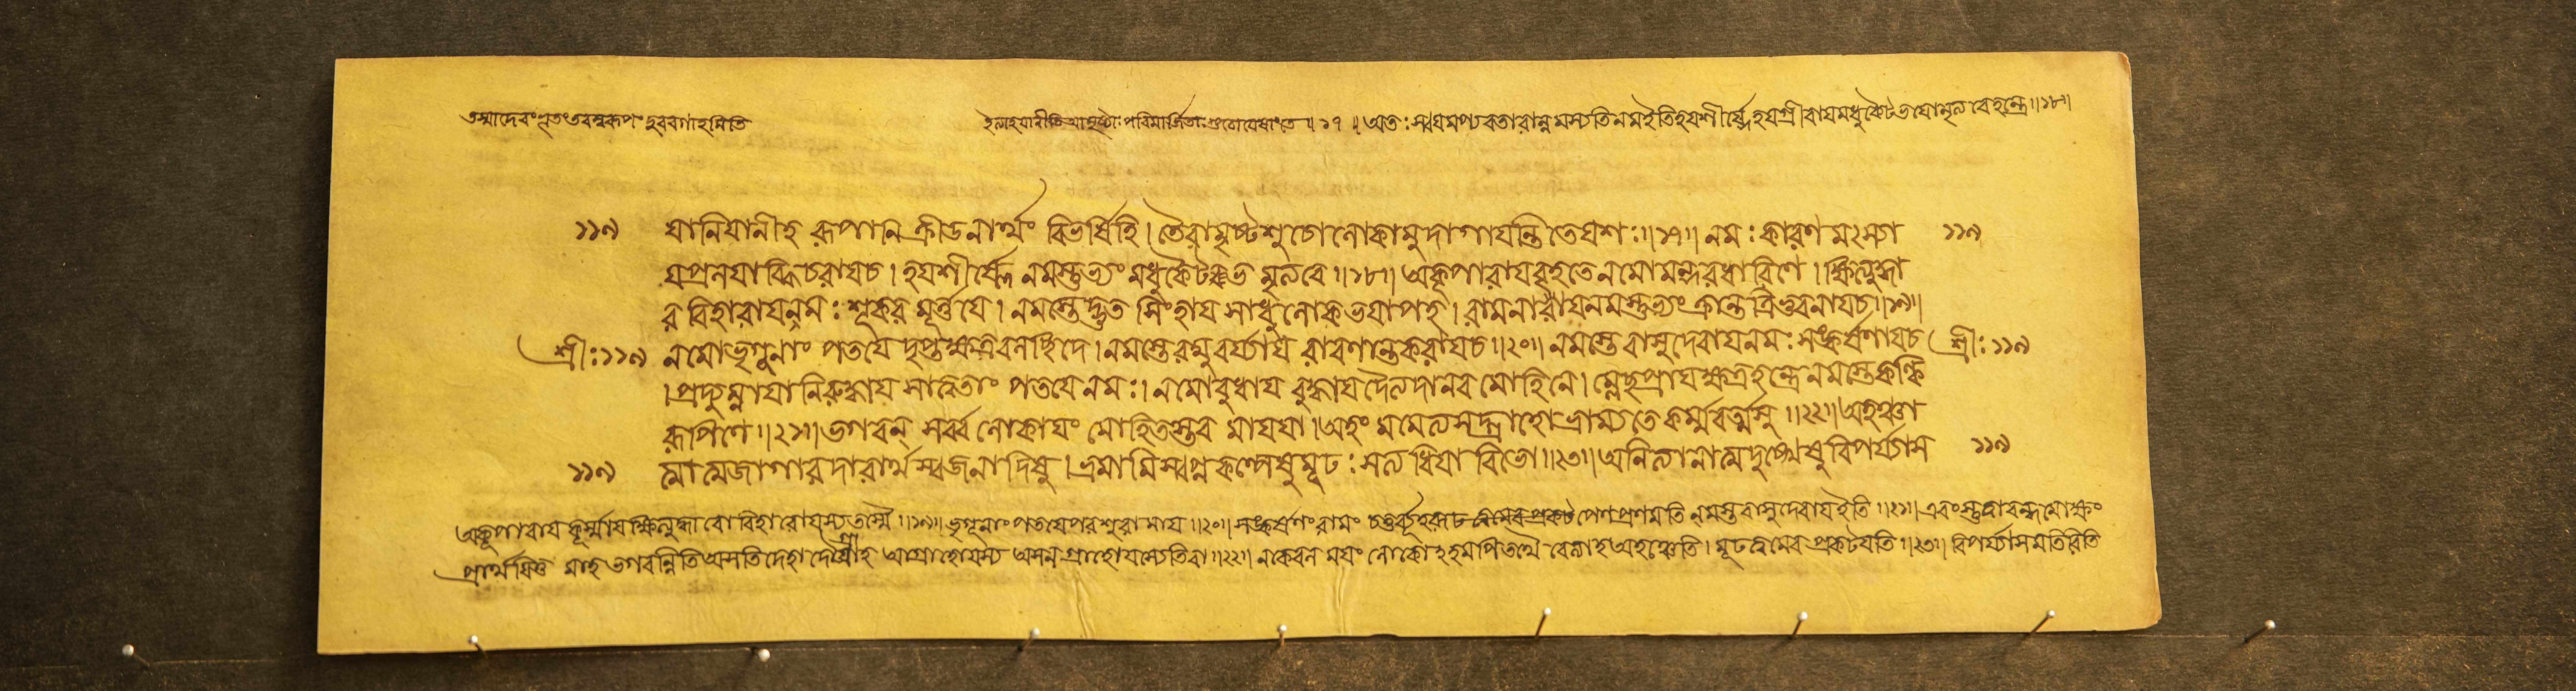 তস্মাদেবংভূতংতবস্বরূপং দুরবগাহমিতি
ইত্যাহযানীতি আমৃষ্টাঃ পরিমার্জিতাঃ শুচোযেষাংতে॥১৭॥ অতঃস্বয়মপ্যবতারান্নমস্যতিনমইতিহযশীর্ষ্ণেহযগ্রীবাযমধুকৈটভযোর্মৃত্যবেহন্ত্রে॥১৮॥
১১৯ যানিযানীহ রূপানি ক্রীডনার্থং বিভর্ষিহি।তৈরামৃষ্টশুচোলোকামুদাগাযন্তিতেযশঃ॥১৭॥নমঃকারণমৎস্যা ১১৯
যপ্রলযাব্ধিচরাযচ।হযশীর্ষ্ণে নমস্তুভ্যং মধুকৈটভ মৃত্যবে॥১৮॥অকূপারাযবৃহতেনমোমন্দরধারিণে।ক্ষিত্যুদ্ধা
র বিহারাযনমঃ শূকর মূর্ত্তযে।নমস্তেদ্ভুত সিংহায সাধুলোকভযাপহ।বামনাযনমস্তুভ্যংক্রান্ত ত্রিভুবনাযচ॥১৯॥
শ্রীঃ১১৯ নমোভৃগূনাং পতযে দৃপ্তক্ষত্রবনচ্ছিদে।নমস্তেরঘুবর্য্যায রাবণান্তকরাযচ॥২০॥নমস্তেবাসুদেবাযনমঃসঙ্কর্ষণাযচ শ্রীঃ১১৯
।প্রদ্যুম্নাযানিরুদ্ধায সাত্বতাং পতযেনমঃ।নমোবুধায বুদ্ধাযদৈত্যদানব মোহিনে।ম্লেছপ্রাযক্ষত্রহন্ত্রেনমস্তেকল্কি
রূপিণে॥২১॥ভগবন্ সর্ব্বলোকাযং মোহিতস্তব মাযযা।অহং মমেত্যসদ্গ্রাহোভ্রাম্যতে কর্ম্মবর্ত্মসু॥২২॥অহঞ্চা
১১৯ ত্মাত্মজাগারদারার্থস্বজনাদিষু।ভ্রমামিস্বপ্নকল্পেষুমূঢঃসত্যধিযা বিভো॥২৩॥অনিত্যানাত্মদুঃখেষুবিপর্য্যাস ১১৯
অকূপারায কূর্ম্মাযক্ষিত্যুদ্ধারো বিহারোযস্যতস্মৈ॥১৯॥ভৃগূনাংপতযেপরশুরামায॥২০॥সঙ্কর্ষণংরামং চতুর্ব্যূহরূপেণপ্রণমতি নমস্তবাসুদেবাযইতি॥২১॥এবংস্তুত্বাবন্ধমোক্ষং
প্রার্থযিতু মাহ ভগবন্নিতি অসতিদেহাদৌ আগ্রাহোযস্য অসন্গ্রাহোযস্যেতিবা॥২২॥নকেবল মযং লোকোঽহমপিতথৈ বেত্যাহঅহঞ্চেতি।মূঢত্বমেব প্রকটযতি॥২৩॥বিপর্য্যাসমতিরিতি